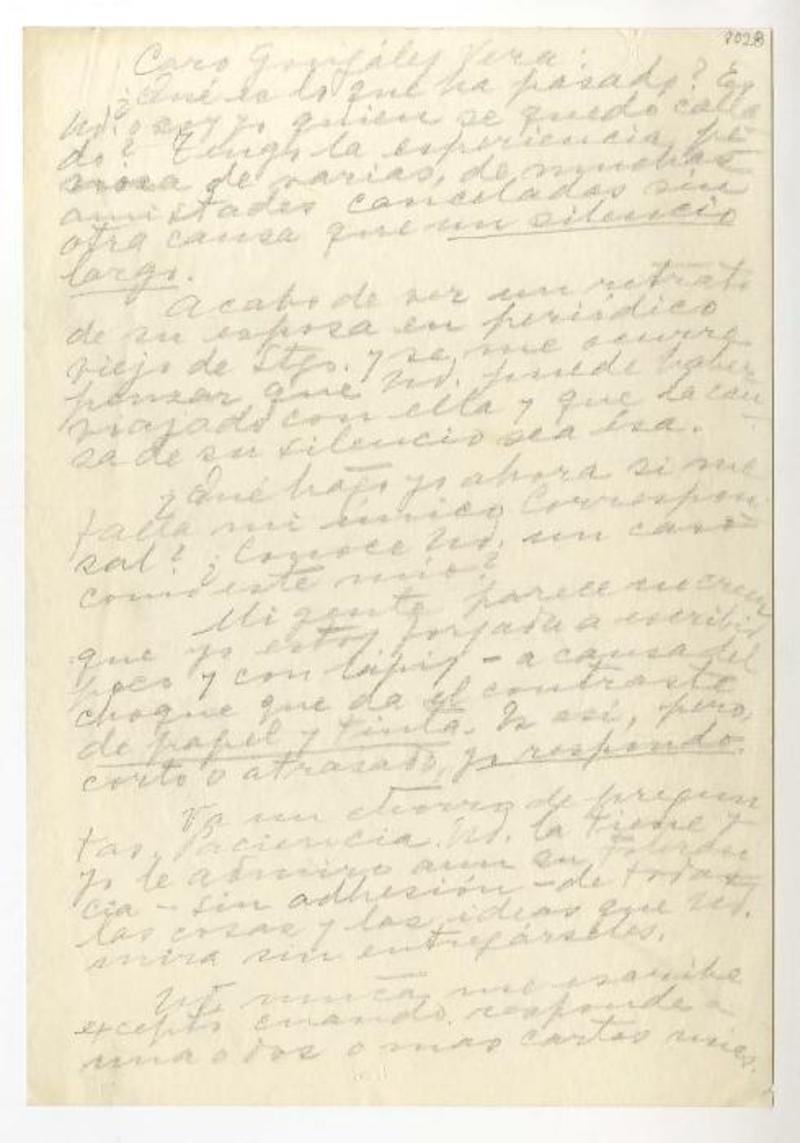 8028
Caro González Vera:
¿Qué es lo que ha pasado? Es
Ud. o soy yo quien se quedó calla
do? Tengo la experiencia pe
nosa de varias, de muchas
amistades canceladas sin
otra causa que un silencio
largo.
Acabo de ver un retrato
de su esposa en periódico
viejo de Stgo. y se me ocurre
penzar que Ud. puede haber
viajado con ella y que la cau
sa de su silencio sea esa.
¿Qué hago yo ahora si me
falta mi único Correspon
sal? ¿Conoce Ud. un caso
como este mío?
Mi gente parece no creer
que yo estoy forzada a escribir
poco y con lápiz - a causa del
choque que da el contraste
de papel y tinta. Es así, pero,
corto o atrasado, yo respondo.
Va un chorro de pregun
tas. Paciencia. Ud. la tiene y
yo le admiro aun su toleran
cia - sin adhesión - de todas
las cosas y las ideas que Ud.
mira sin entregárseles.
Ud. nunca me escribe
excepto cuando responde a
una o dos o mas cartas mías.